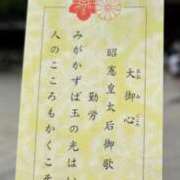 大御心
おおみごころ
昭憲皇太后御歌
勤労
みがかずば玉の光はい
人のこころもかくこそ